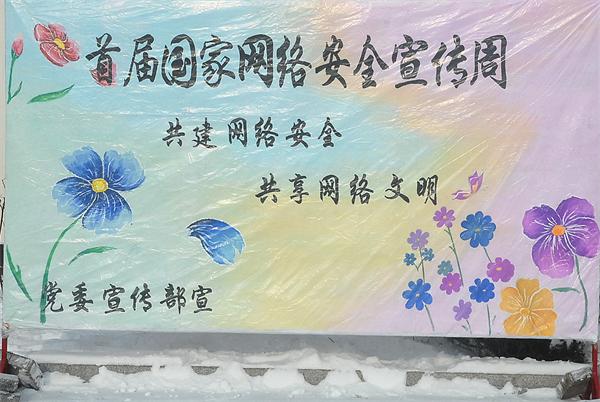 首届国家网络安全宣传周
共建网络安全
共享网络文明
党委宣传部宣